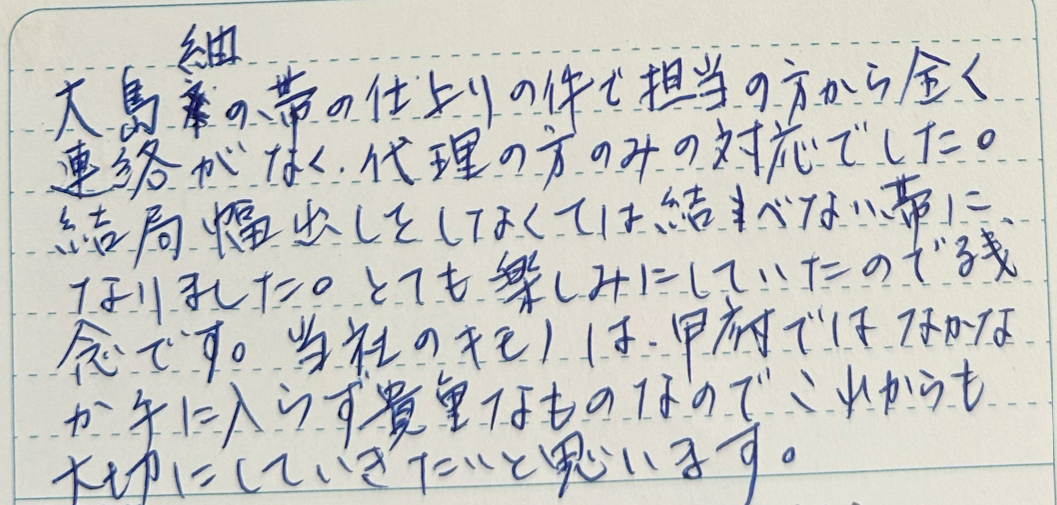 大島紬の帯の仕上りの件で担当の方から全く
連絡がなく、代理の方のみの対応でした。
結局幅出しをしなくては結べない帯に、
なりました。とても楽しみにしていたので残
念です。当社のキモノは、甲府ではなかな
か手に入らず貴重なものなので、これからも
大切にしていきたいと思います。